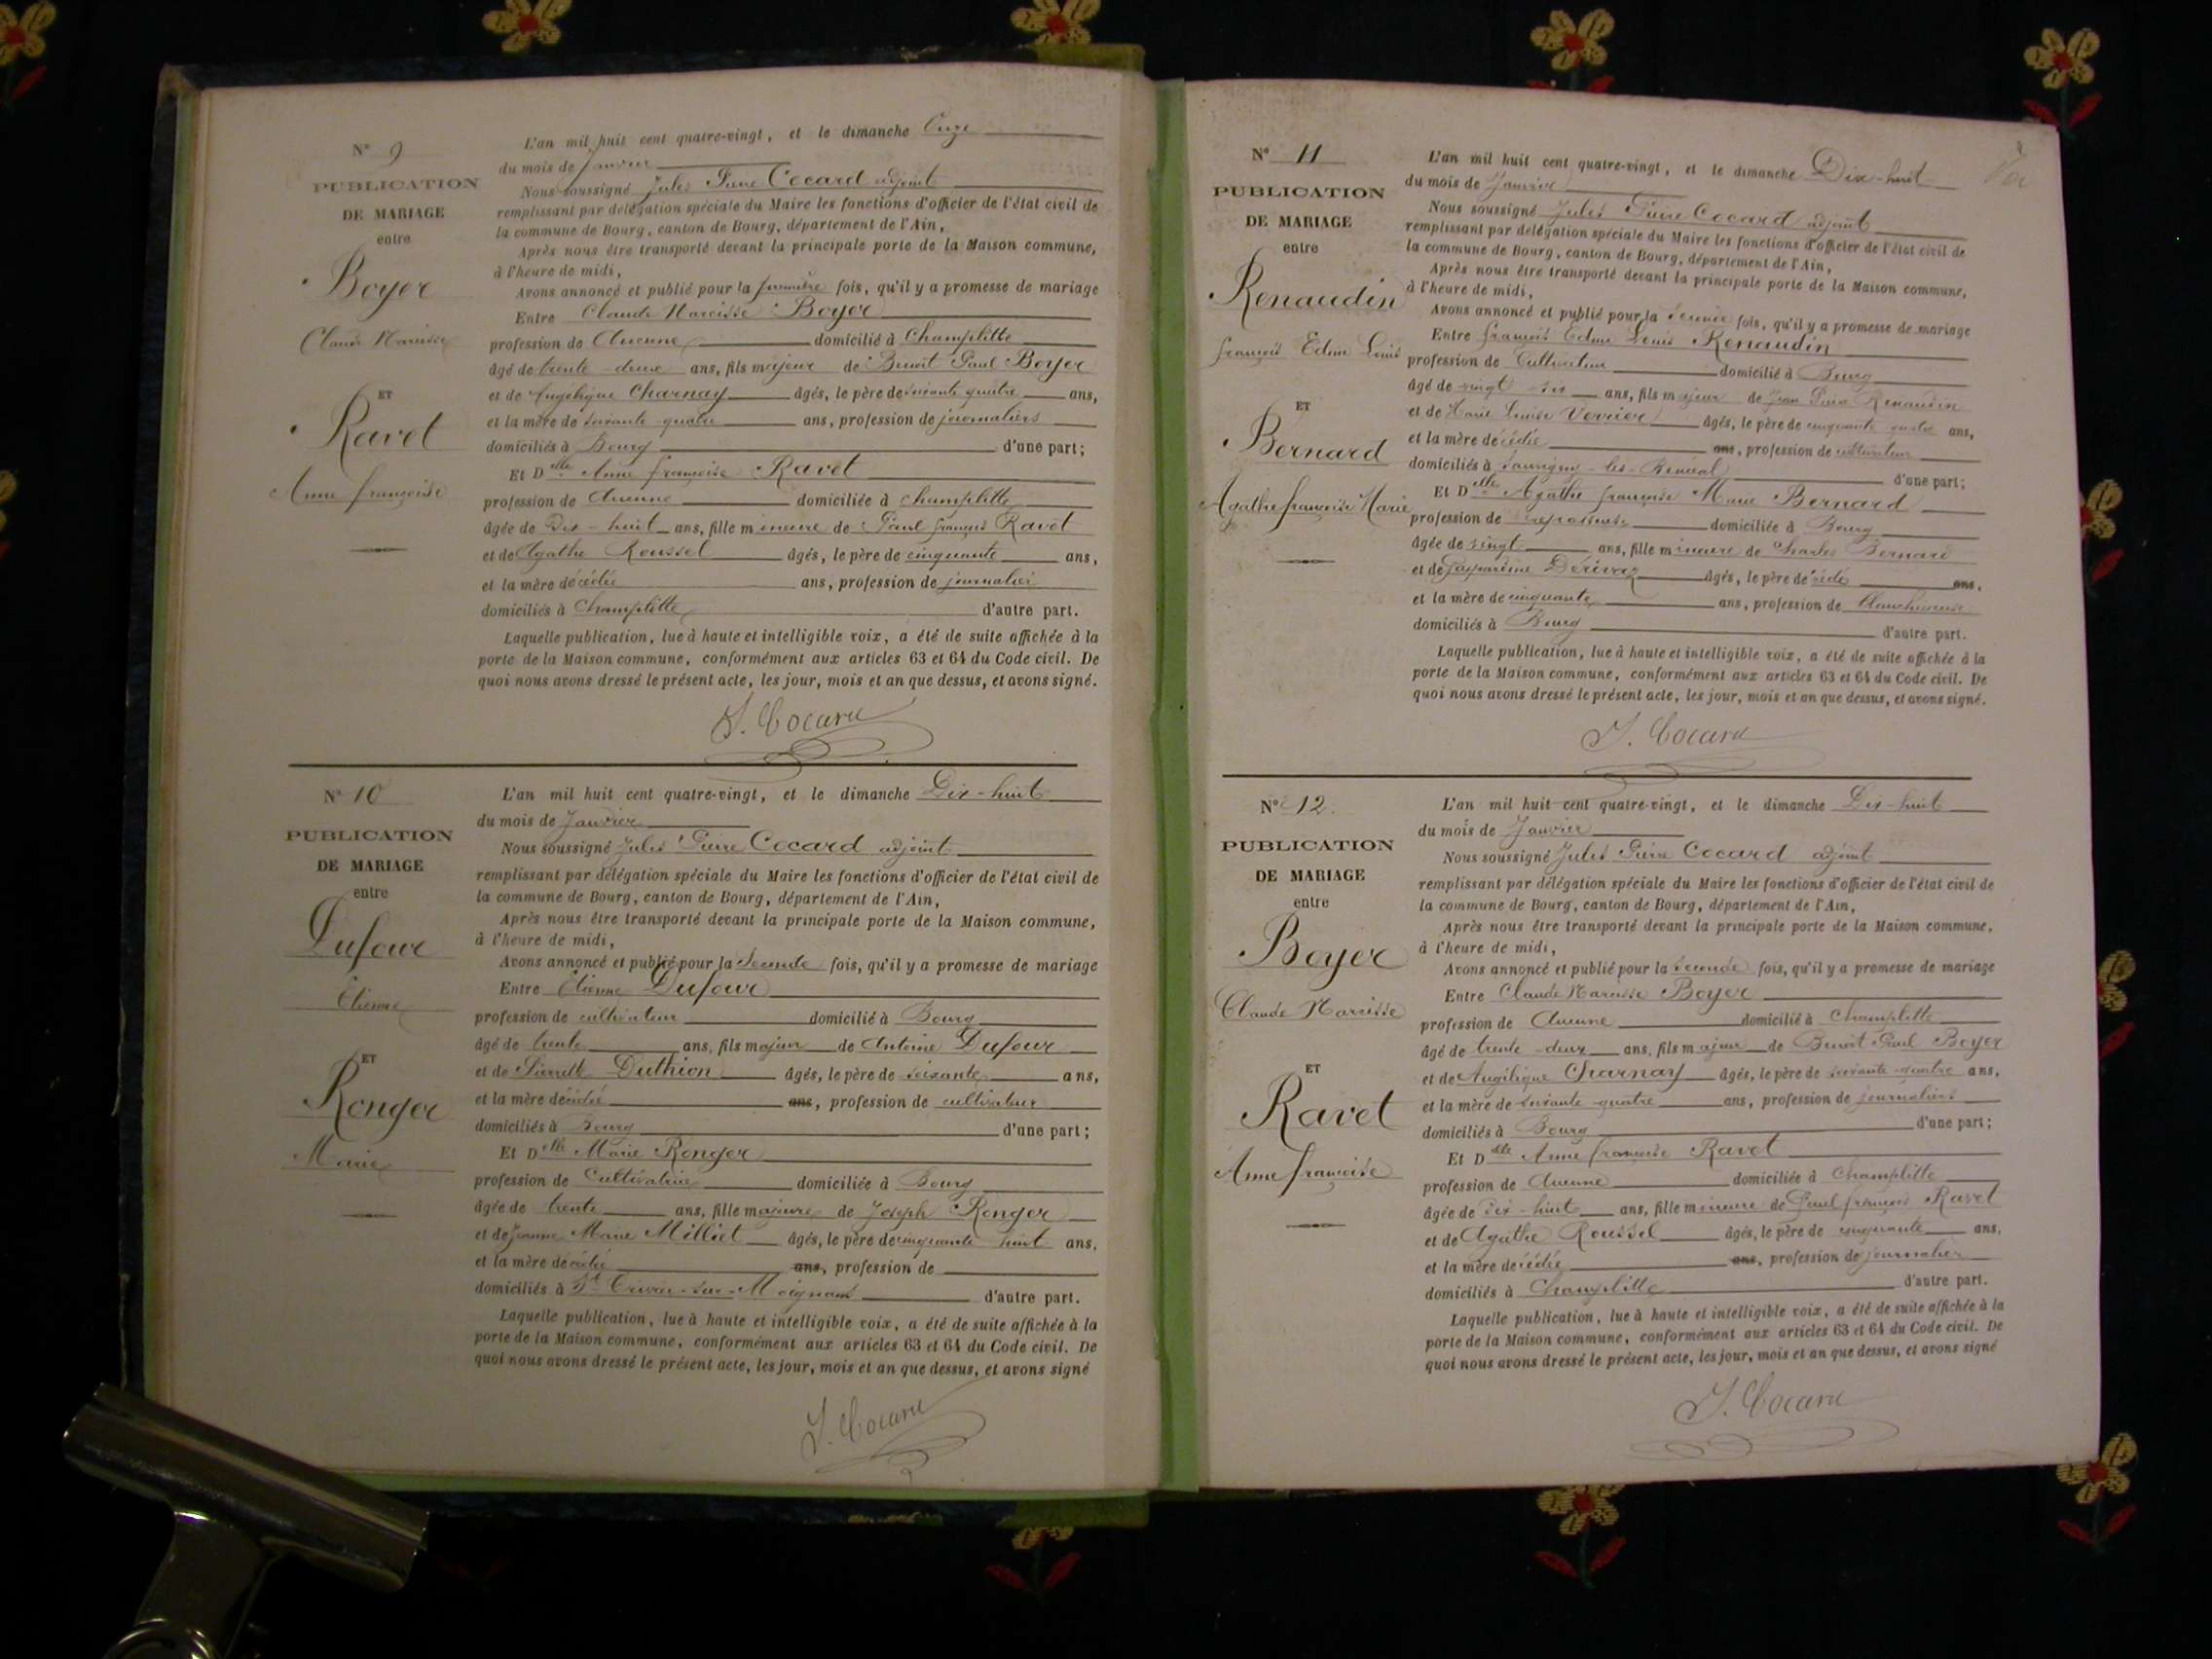 N° 9
PUBLICATION
DE MARIAGE
entre
Boyer
Claude Narcisse
ET
Ravet
Anne françoise
L'an mil huit cent quatre-vingt, et le dimanche Onze
du mois de Janvier
Nous soussigné Jules Pierre Cocard adjoint
remplissant par délégation spéciale du Maire les fonctions d'officier de l'état civil de
la commune de Bourg, canton de Bourg, département de l'Ain,
Après nous être transporté devant la principale porte de la Maison commune,
à l'heure de midi,
Avons annoncé et publié pour la première fois, qu'il y a promesse de mariage
Entre Claude Narcisse Boyer
profession de Aucune domicilié à Champlitte
âgé de trente-deux ans, fils majeur de Benoit Paul Boyer
et de Angélique Charnay âgés, le père de soixante quatre ans,
et la mère de soixante-quatre ans, profession de journaliers
domiciliés à Bourg d'une part;
Et Delle Anne françoise Ravet
profession de Aucune domiciliée à Champlitte
âgée de Dix-huit ans, fille mineure de Paul françois Ravet
et de Agathe Roussel âgés, le père de cinquante ans,
et la mère décédée ans, profession de journalier
domiciliés à Champlitte d'autre part.
Laquelle publication, lue à haute et intelligible voix, a été de suite affichée à la
porte de la Maison commune, conformément aux articles 63 et 64 du Code civil. De
quoi nous avons dressé le présent acte, les jour, mois et an que dessus, et avons signé.
J. Cocard
N° 10
PUBLICATION
DE MARIAGE
entre
Dufour
Etienne
ET
Ronger
Marie
L'an mil huit cent quatre-vingt, et le dimanche Dix-huit
du mois de Janvier
Nous soussigné Jules Pierre Cocard adjoint
remplissant par délégation spéciale du Maire les fonctions d'officier de l'état civil de
la commune de Bourg, canton de Bourg, département de l'Ain,
Après nous être transporté devant la principale porte de la Maison commune,
à l'heure de midi,
Avons annoncé et publié pour la Seconde fois, qu'il y a promesse de mariage
Entre Etienne Dufour
profession de cultivateur domicilié à Bourg
âgé de trente ans, fils majeur de Antoine Dufour
et de Pierrette Duthion âgés, le père de soixante ans,
et la mère décédée ans, profession de cultivateur
domiciliés à Bourg d'une part;
Et Delle Marie Ronger
profession de Cultivatrice domiciliée à Bourg
âgée de trente ans, fille majeure de Joseph Ronger
et de Jeanne Marie Milliet âgés, le père de cinquante huit ans,
et la mère décédée ans, profession de
domiciliés à St Trivier-sur-Moignans d'autre part.
Laquelle publication, lue à haute et intelligible voix, a été de suite affichée à la
porte de la Maison commune, conformément aux articles 63 et 64 du Code civil. De
quoi nous avons dressé le présent acte, les jour, mois et an que dessus, et avons signé
J. Cocard
N° 11
PUBLICATION
DE MARIAGE
entre
Renaudin
françois Edme Louis
ET
Bernard
Agathe françoise Marie
L'an mil huit cent quatre-vingt, et le dimanche Dix-huit
du mois de Janvier
Nous soussigné Jules Pierre Cocard adjoint
remplissant par délégation spéciale du Maire les fonctions d'officier de l'état civil de
la commune de Bourg, canton de Bourg, département de l'Ain,
Après nous être transporté devant la principale porte de la Maison commune,
à l'heure de midi,
Avons annoncé et publié pour la seconde fois, qu'il y a promesse de mariage
Entre françois Edme Louis Renaudin
profession de Cultivateur domicilié à Bourg
âgé de vingt-six ans, fils majeur de Jean Pierre Renaudin
et de Marie Louise Verrier âgés, le père de cinquante quatre ans,
et la mère décédée ans, profession de cultivateur
domiciliés à Sauvigny-les- d'une part;
Et Delle Agathe françoise Marie Bernard
profession de repasseuse domiciliée à Bourg
âgée de vingt ans, fille mineure de Charles Bernard
et de Gasparine âgés, le père décédé ans,
et la mère de cinquante ans, profession de Blanchisseuse
domiciliés à Bourg d'autre part.
Laquelle publication, lue à haute et intelligible voix, a été de suite affichée à la
porte de la Maison commune, conformément aux articles 63 et 64 du Code civil. De
quoi nous avons dressé le présent acte, les jour, mois et an que dessus, et avons signé.
J. Cocard
N° 12.
PUBLICATION
DE MARIAGE
entre
Boyer
Claude Narcisse
ET
Ravet
Anne françoise
L'an mil huit cent quatre-vingt, et le dimanche Dix-huit
du mois de Janvier
Nous soussigné Jules Pierre Cocard adjoint
remplissant par délégation spéciale du Maire les fonctions d'officier de l'état civil de
la commune de Bourg, canton de Bourg, département de l'Ain,
Après nous être transporté devant la principale porte de la Maison commune,
à l'heure de midi,
Avons annoncé et publié pour la seconde fois, qu'il y a promesse de mariage
Entre Claude Narcisse Boyer
profession de Aucune domicilié à Champlitte
âgé de trente-deux ans, fils majeur de Benoit Paul Boyer
et de Angélique Charnay âgés, le père de soixante-quatre ans,
et la mère de soixante-quatre ans, profession de journaliers
domiciliés à Bourg d'une part;
Et Delle Anne françoise Ravet
profession de Aucune domiciliée à Champlitte
âgée de dix-huit ans, fille mineure de Paul françois Ravet
et de Agathe Roussel âgés, le père de cinquante ans,
et la mère décédée ans, profession de journalier
domiciliés à Champlitte d'autre part.
Laquelle publication, lue à haute et intelligible voix, a été de suite affichée à la
porte de la Maison commune, conformément aux articles 63 et 64 du Code civil. De
quoi nous avons dressé le présent acte, les jour, mois et an que dessus, et avons signé
J. Cocard